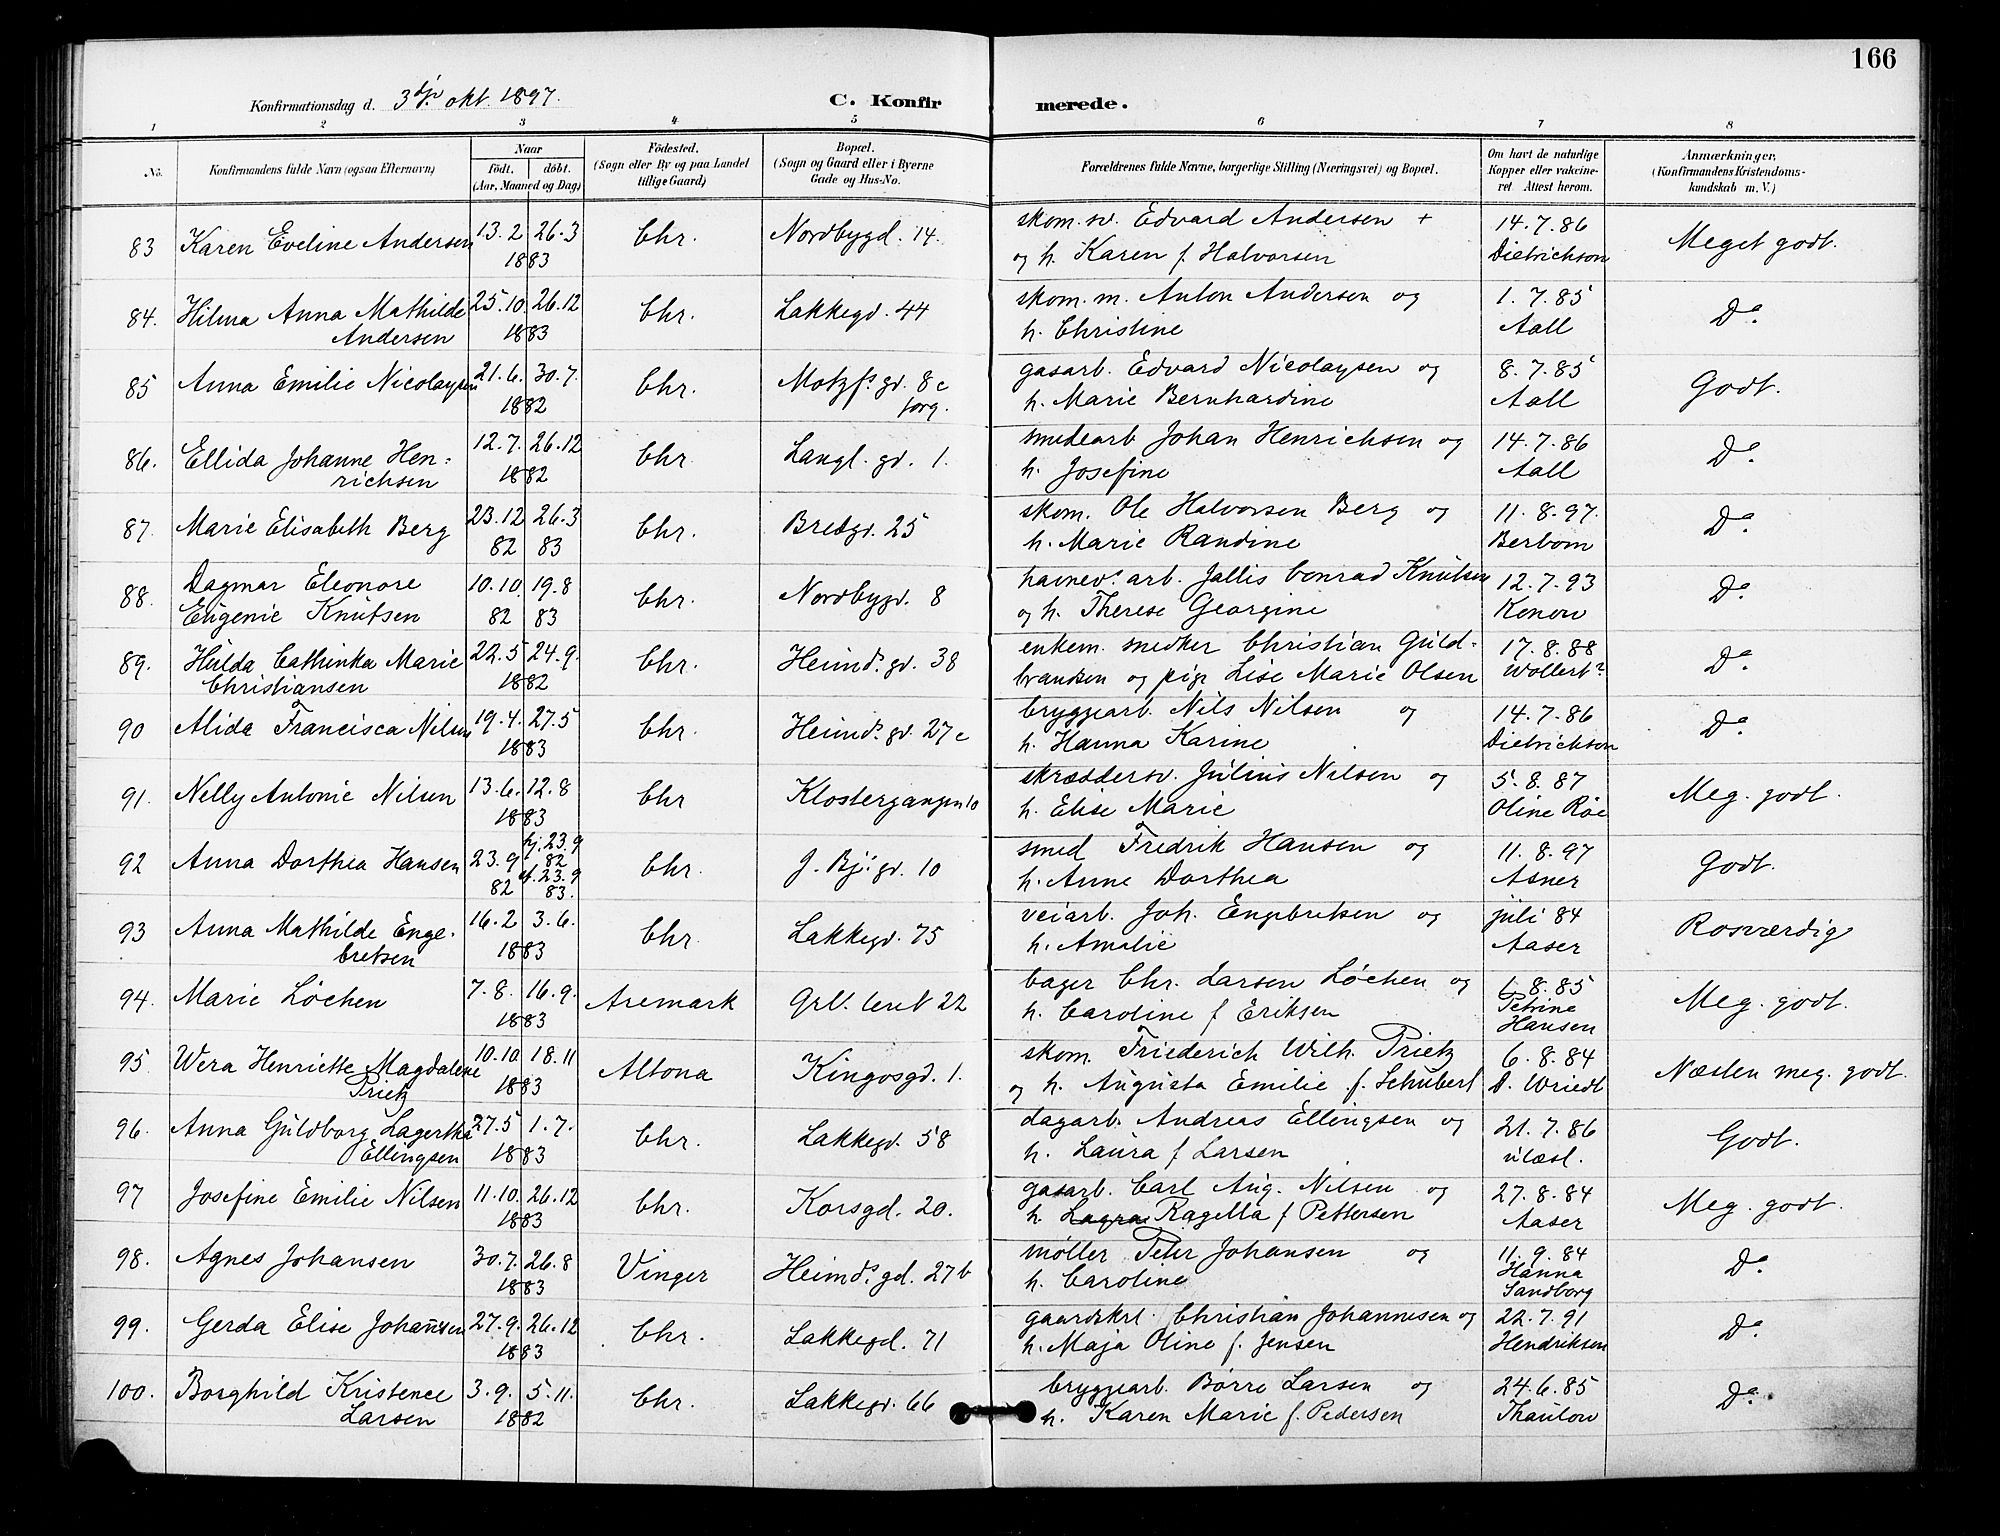 166
Konfirmationsdag d. 3dje okt. 1897.
C. Konfirmerede.
1 2 3 4 5 6 7 8
No. Konfirmandens fulde Navn (ogsaa Efternavn) Naar født. døbt. (Aar, Maaned og Dag) Fødested. (Sogn eller By og paa Landet tillige Gaard) Bopæl. (Sogn og Gaard eller i Byerne Gade og Hus-No. Forældrenes fulde Navne, borgerlige Stilling (Næringsvei) og Bopæl. Om havt de naturlige Kopper eller vakcineret. Attest herom. Anmærkninger. (Konfirmandens Kristendomskundskab m. V.)
83 Karen Eveline Andersen 13.2 26.3 1883 Chr. Nordbygd. 14. skom. sv. Edvard Andersen +
og h. Karen f. Halvorsen 14.7.86 Dietrichson Meget godt.
84. Hilma Anna Mathilde
Andersen 25.10. 26.12 1883 Chr. Lakkegd. 44 skom. m. Anton Andersen og
h. Christine 1.7.85 Aall Do.
85 Anna Emilie Nicolaysen 21.6. 30.7. 1882 Chr. Motzf. gd. 8c
forg. gasarb. Edvard Nicolaysen og
h. Marie Bernhardine 8.7.85 Aall Godt.
86. Ellida Johanne Hen=
richsen 12.7. 26.12 1882 Chr Langl. gd. 1. smedearb Johan Henrichsen og
h. Josefine 14.7.86 Aall Do.
87. Marie Elisabeth Berg 23.12 26.3 82 83 Chr. Bredgd. 25 skom. Ole Halvorsen Berg og
h. Marie Randine 11.8.97. Berbom Do.
88. Dagmar Eleonore
Eugenie Knutsen 10.10 19.8 82 83 Chr. Nordbygd. 8 havnev. arb. Jallis Conrad Knutsen
og h. Therese Georgine 12.7.93 Konow Do.
89. Hulda Cathinka Marie
Christiansen 22.5 24.9. 1882 Chr. Heimd. gd. 38 enkem. snedker Christian Guld-
brandsen og pige Lise Marie Olsen 17.8.88 Wollert Do.
90 Alida Francisca Nilsen 19.4. 27.5 1883 Chr. Heimd. gd. 27c bryggearb. Nils Nilsen og
h. Hanna Karine 14.7.86 Dietrichson Do.
91. Nelly Antonie Nilsen 13.6. 12.8 1883 Chr Klostergangen 10 skræddersv. Julius Nilsen og
h. Elise Marie 5.8.87 Oline Røe Meg. godt.
92 Anna Dorthea Hansen 23.9 82 hj. 23.9 82 st. 23.9 83. Chr. J. Bj. gd. 10 smed Fredrik Hansen og
h. Anne Dorthea 11.8.97 Asner Godt.
93 Anna Mathilde Enge-
bretsen 16.2 3.6. 1883 Chr. Lakkegd. 75 veiarb. Joh. Engebretsen og
h. Amalie juli 84 Aaser Rosværdig
94. Marie Løchen 7.8. 16.9. 1883 Aremark Grl. Leret 22 bager Chr. Larsen Løchen og
h. Caroline f Eriksen 1.8.85 Petrine Hansen Meg. godt.
95 Wera Henriette Magdalene
Prietz 10.10 18.11 1883 Altona Kingosgd. 1. skom. Friederich Wilh. Prietz
og h. Augusta Emilie f. Schubert 6.8.84 D. Wriedt Næsten meg. godt.
96. Anna Guldborg Lagertha
Ellingsen 27.5 1.7. 1883 Chr. Lakkegd. 58 dagarb. Andreas Ellingsen og
h. Laura f Larsen 21.7.86 ulæsl. Godt.
97 Josefine Emilie Nilsen 11.10. 26.12 1883 Chr. Korsgd. 20. gasarb. Carl Aug. Nilsen og
h. Ragella f Pettersen 27.8.84 Aaser Meg. godt.
98. Agnes Johansen 30.7. 26.8 1883 Vinger Heimd. gd. 27b møller Peter Johansen og
h. Caroline 11.9.84 Hanna Sandborg Do.
99. Gerda Elise Johannsen 27.9. 26.12 1883 Chr. Lakkegd. 71 gaardskrl. Christian Johannesen og
h. Maja Oline f. Jensen 22.7.91 Hendriksen Do.
100. Borghild Kristence
Larsen 3.9. 5.11. 1882 Chr. Lakkegd. 66 bryggearb. Børre Larsen og
h. Karen Marie f. Pedersen 24.6.85 Thaulow Do.